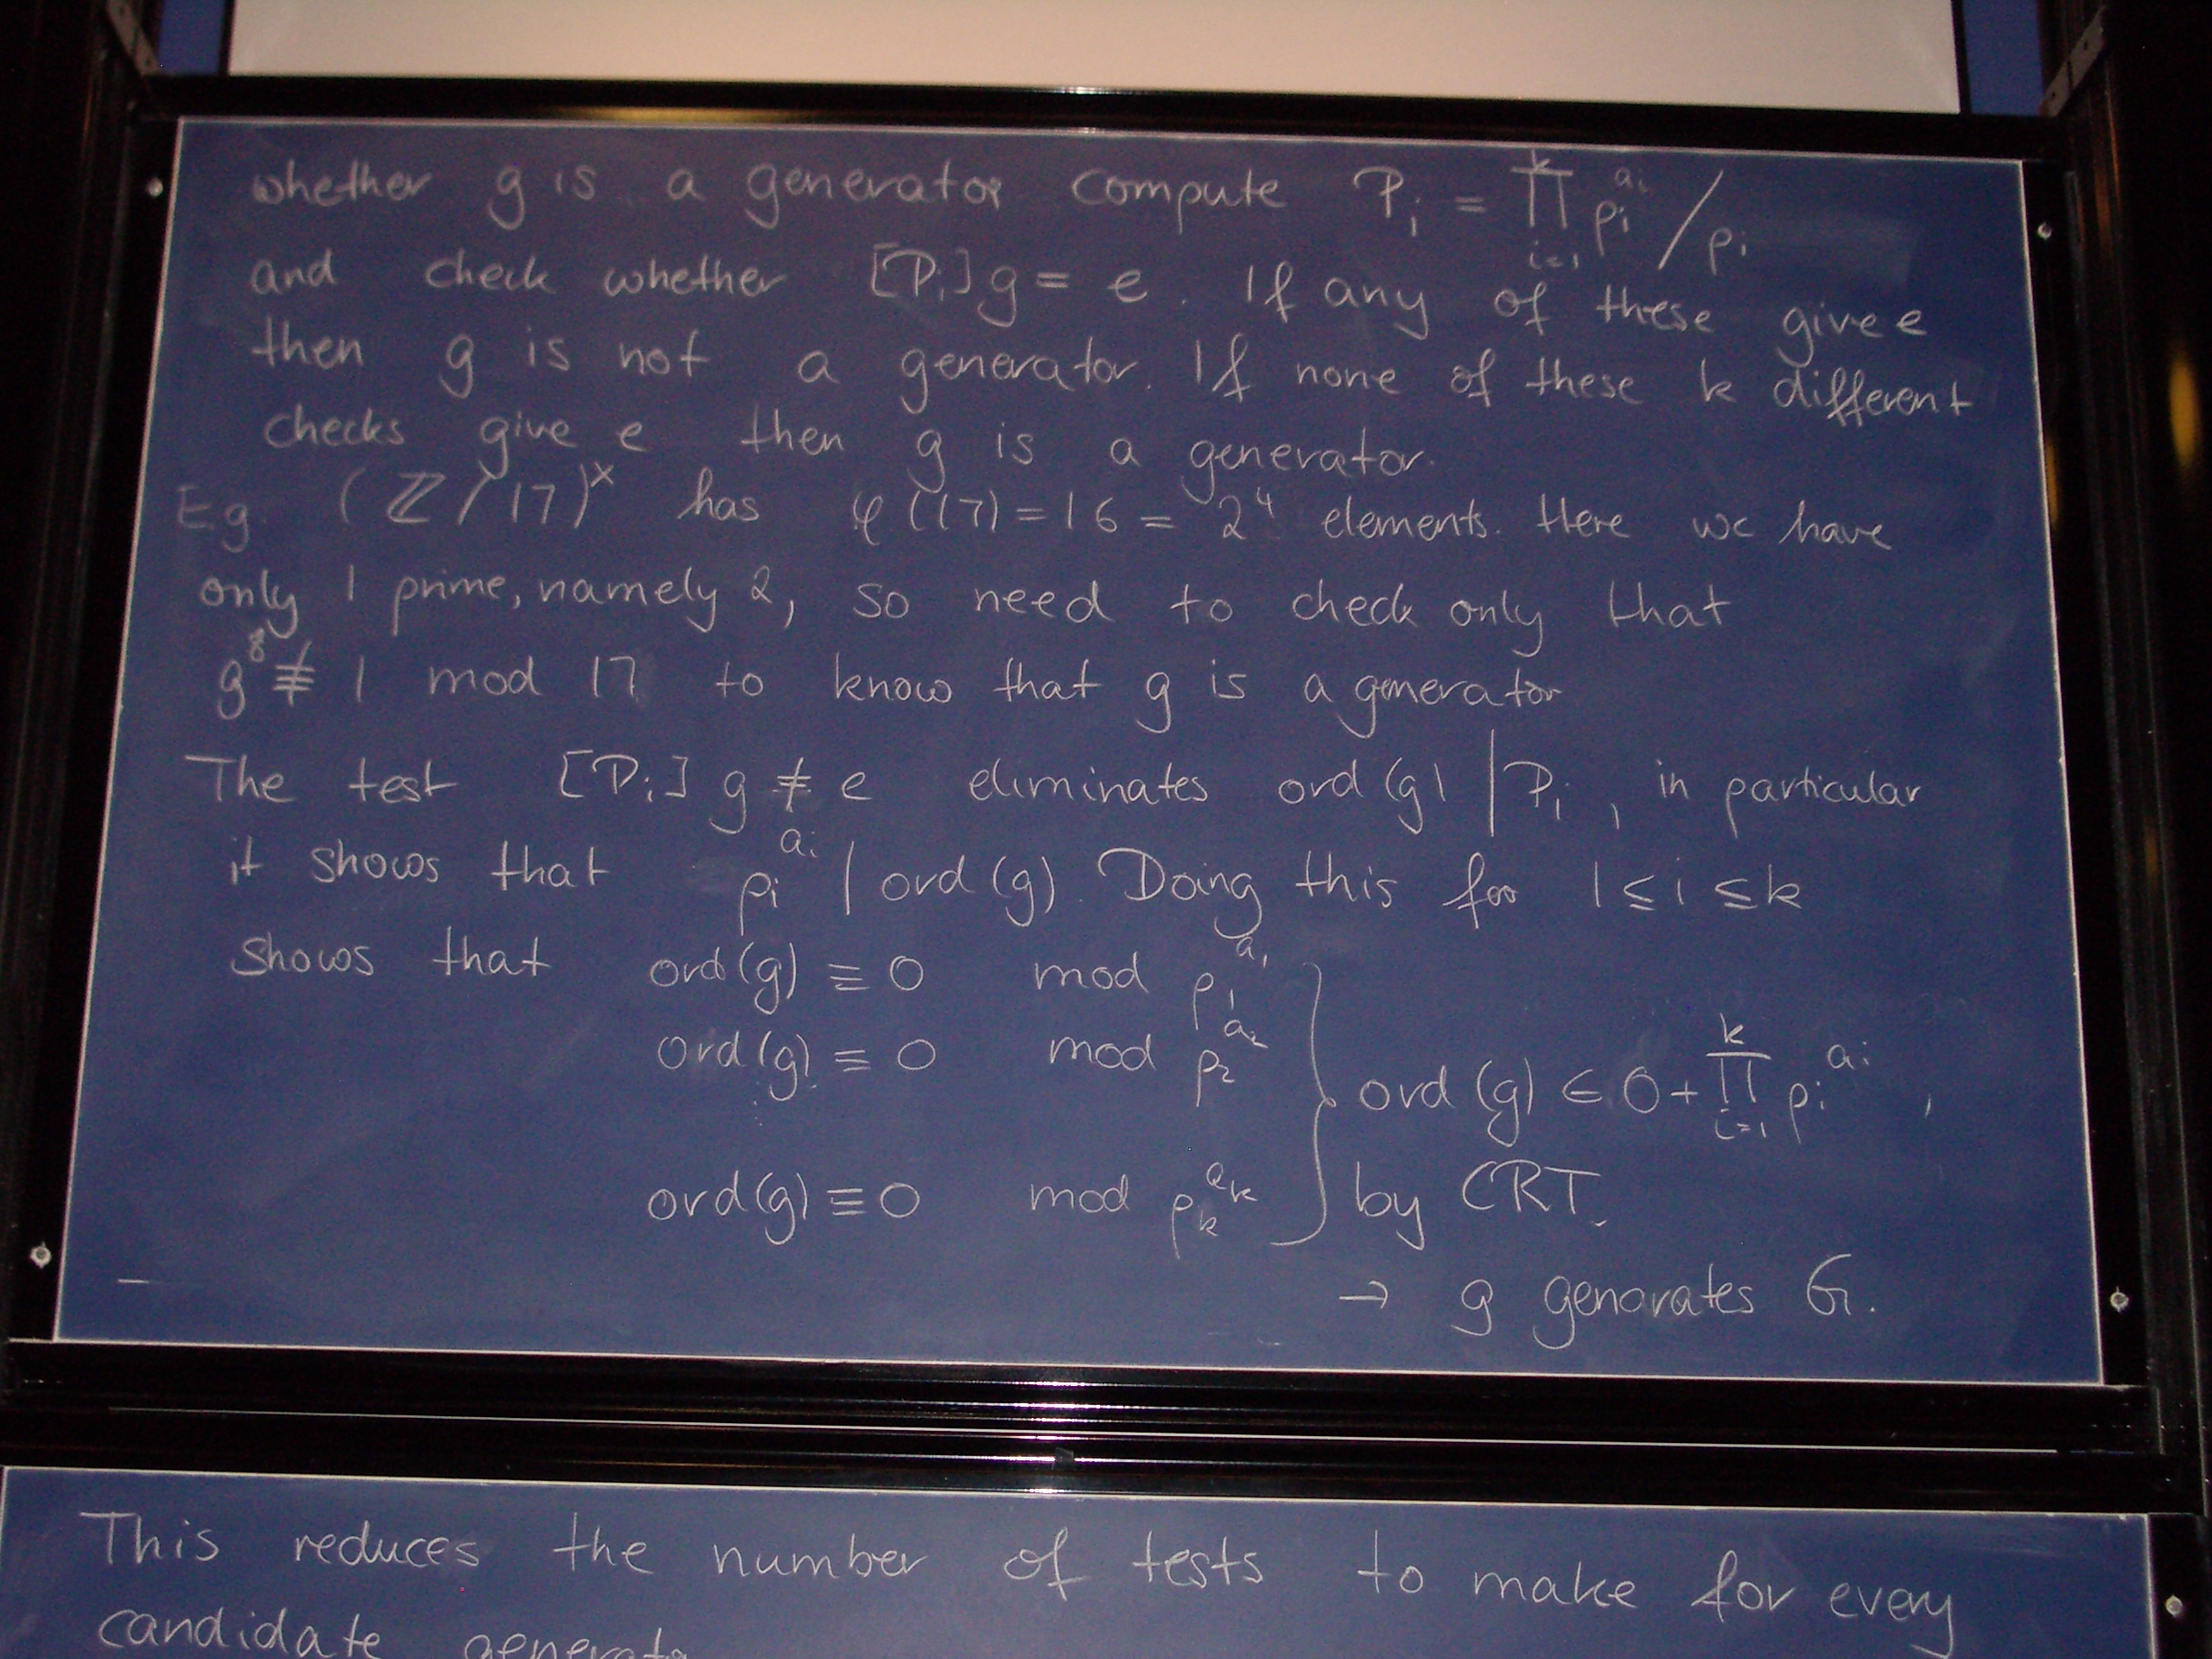 whether g is a generator compute P_i = ∏_{i=1}^{k} p_i^{a_i} / p_i
and check whether [P_i]g = e. If any of these give e
then g is not a generator. If none of these k different
checks give e then g is a generator.
Eg (ℤ/17)^× has φ(17) = 16 = 2^4 elements. Here we have
only 1 prime, namely 2, so need to check only that
g^8 ≢ 1 mod 17 to know that g is a generator
The test [P_i] g ≠ e eliminates ord(g) | P_i, in particular
it shows that p_i^{a_i} | ord(g). Doing this for 1 ≤ i ≤ k
shows that ord(g) ≡ 0 mod p_1^{a_1}
ord(g) ≡ 0 mod p_2^{a_2}
ord(g) ∈ 0 + ∏_{i=1}^{k} p_i^{a_i},
ord(g) ≡ 0 mod p_k^{a_k} } by CRT.
→ g genarates G.
This reduces the number of tests to make for every
candidate